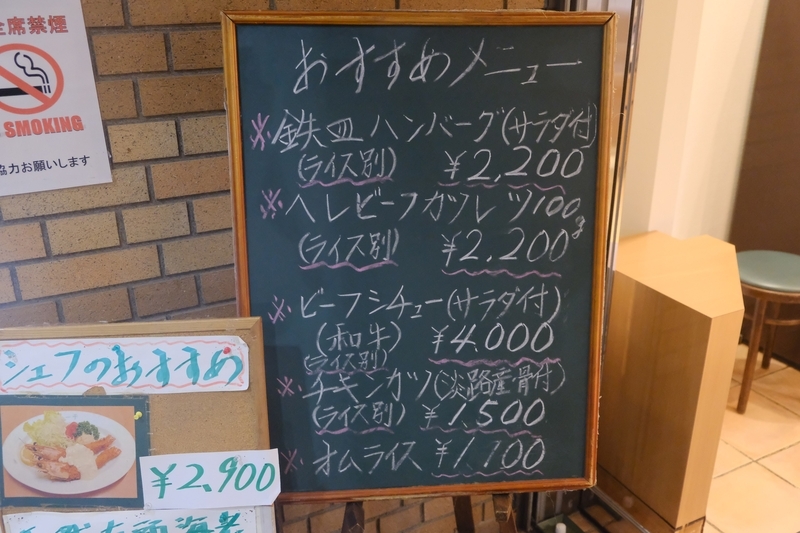 全席禁煙
SMOKING
協力お願いします
おすすめメニュー
※鉄皿ハンバーグ(サラダ付)
(ライス別) ¥2,200
※ヘレビーフカツレツ100g
(ライス別) ¥2,200
※ビーフシチュー(サラダ付)
(和牛) ¥4,000
(ライス別)
※チキンカツ(淡路産骨付)
(ライス別) ¥1,500
※オムライス ¥1,100
シェフのおすすめ
¥2,900